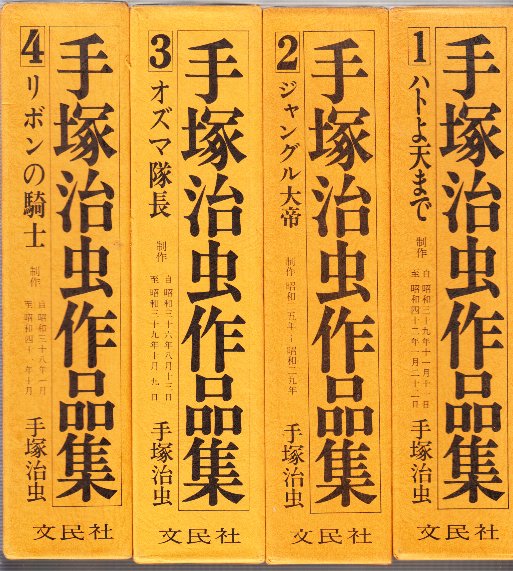 1
ハトよ天まで
制作
自 昭和三十九年十一月十一日
至 昭和四十二年一月二十二日
手塚治虫
手塚治虫作品集
文民社
2
ジャングル大帝
制作 昭和二五年〜昭和二九年
手塚治虫
手塚治虫作品集
文民社
3
オズマ隊長
制作
自 昭和三十六年八月十三日
至 昭和三十九年十月九日
手塚治虫
手塚治虫作品集
文民社
4
リボンの騎士
制作
自 昭和三十八年一月
至 昭和四十一年十月
手塚治虫
手塚治虫作品集
文民社